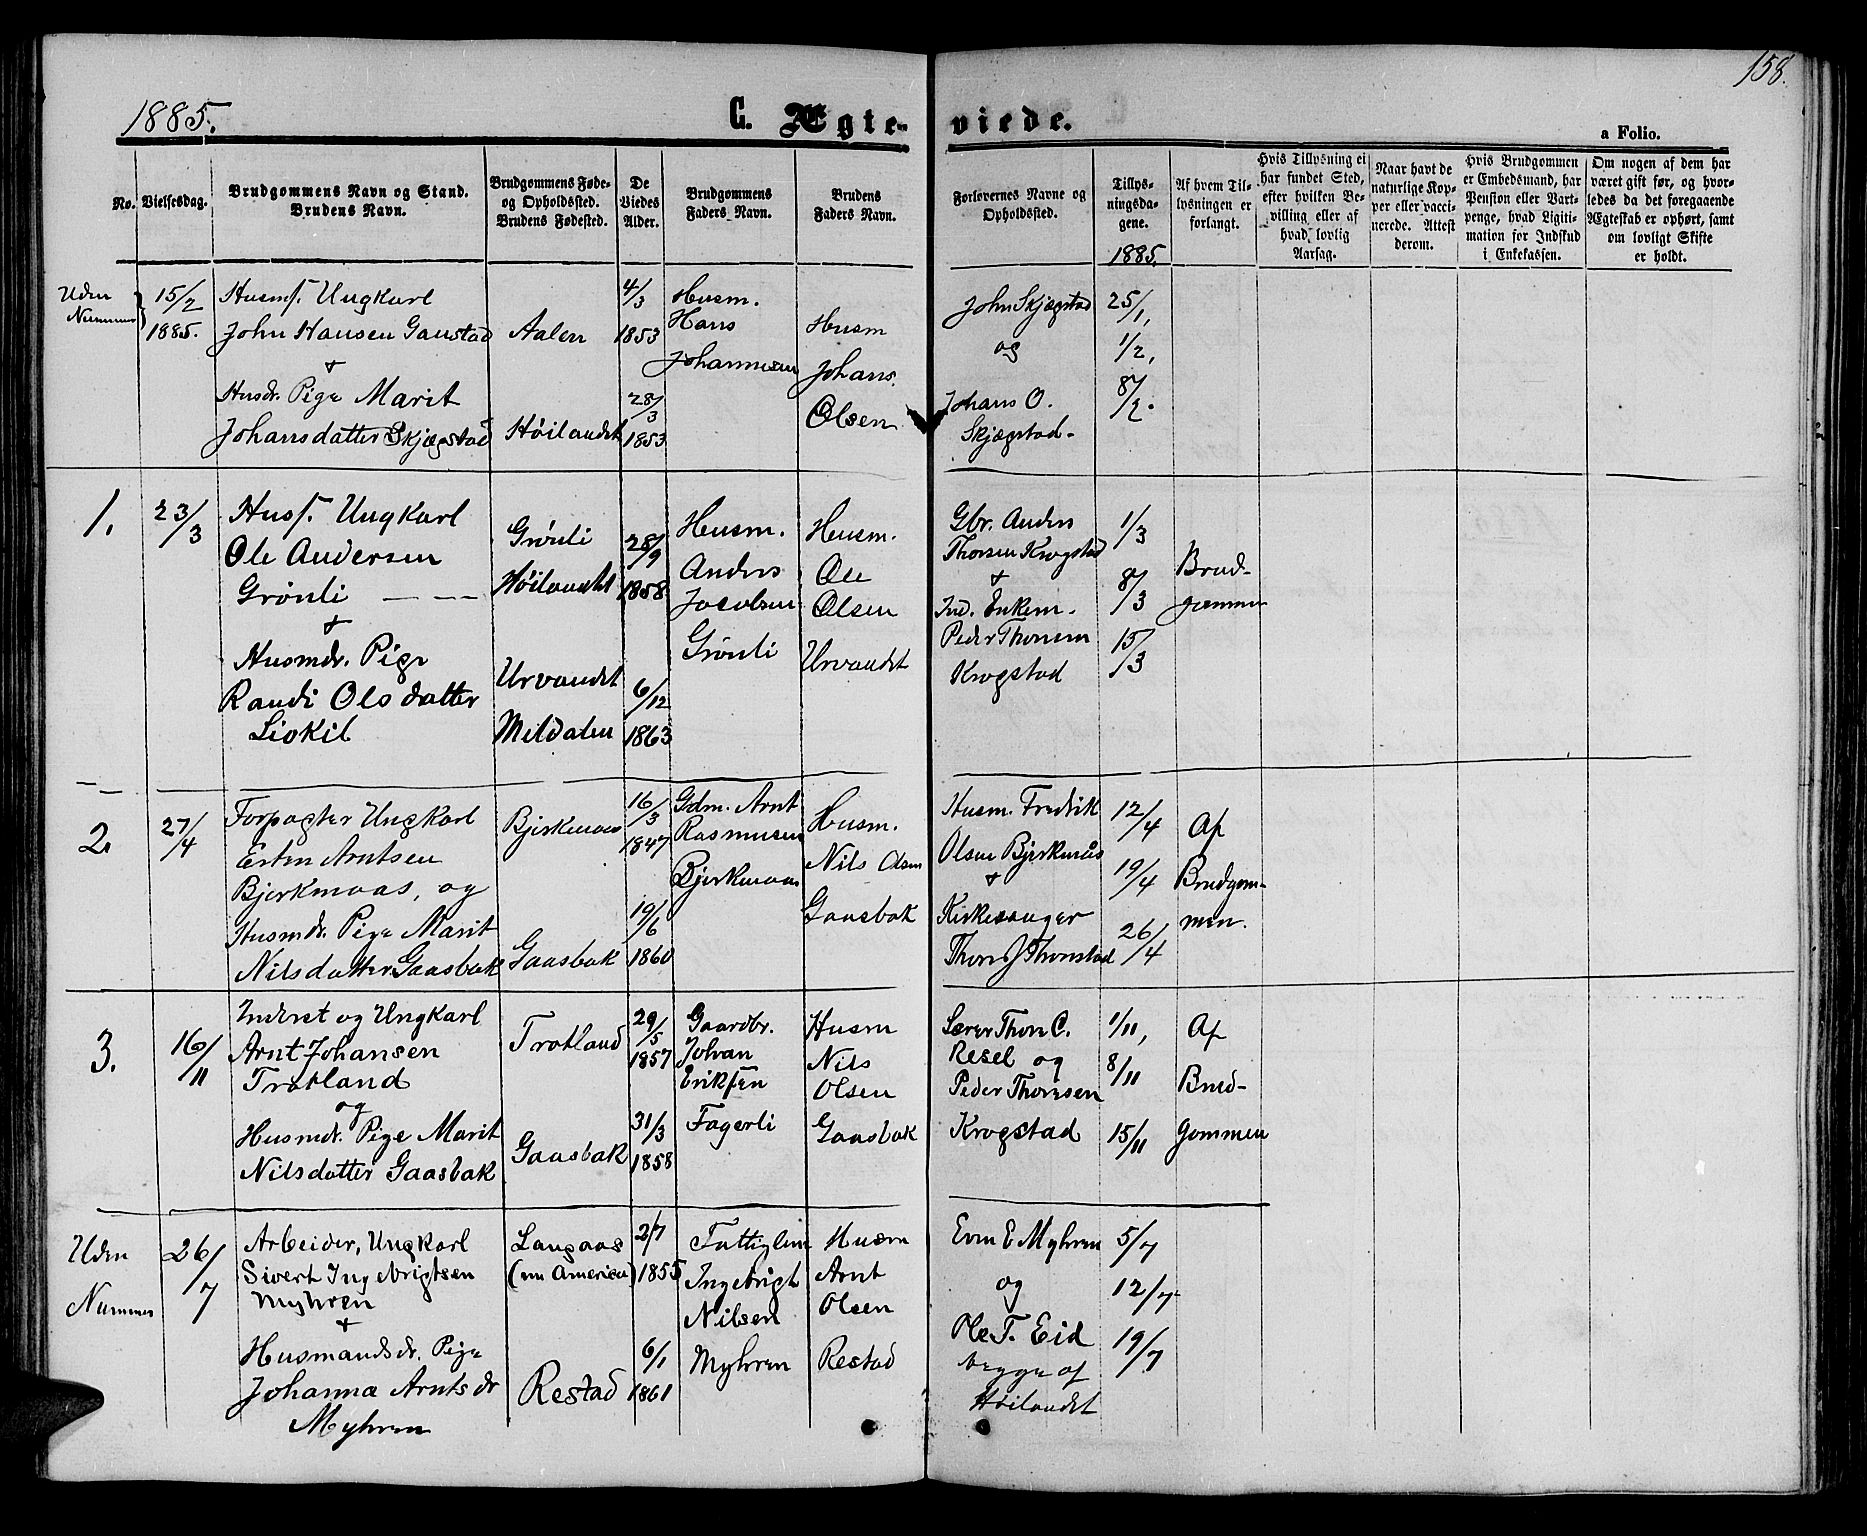 158.
1885.
C. Ægte-
viede.
a Folio.
No.
Vielsesdag.
Brudgommens Navn og Stand.
Brudens Navn.
Brudgommens Føde-
og Opholdssted.
Brudens Fødested.
De
Viedes
Alder.
Brudgommens
Faders Navn.
Brudens
Faders Navn.
Forlovernes Navne og
Opholdssted.
Tillys-
ningsda-
gene.
1885.
Af hvem Til-
lysningen er
forlangt.
Hvis Tillysning ei
har fundet Sted,
efter hvilken Be-
villing eller af
hvad lovlig
Aarsag.
Naar havt de
naturlige Kop-
per eller vacci-
nerede. Attest
derom.
Hvis Brudgommen
er Embedsmand, har
Pension eller Vart-
penge, hvad Ligiti-
mation for Indskud
i Enkekassen.
Om nogen af dem har
været gift før, og hvor-
ledes da det foregaaende
Ægteskab er ophørt, samt
om lovligt Skifte
er holdt.
Uden
Nummer
15/2
1885.
Husmf. Ungkarl
John Hansen Gaustad
+
Husdr. Pige Marit
Johansdatter Skjægstad
Aalen
Høilandet
4/3
1853
28/3
1853
Husm.
Hans
Johannesen
Husm
Johans.
Olsen
John Skjægstad
og
Johans O.
Skjægstad.
25/1,
1/2,
8/2.
1.
23/3
Husf. Ungkarl
Ole Andersen
Grønli
+
Husmdr. Pige
Randi Olsdatter
Liokil
Grønli
Høilandet
Urvandet
Meldalen
28/9
1858
6/12
1863
Husm.
Anders
Jacobsen
Grønli
Husm.
Ole
Olsen
Urvandet
Gbr. Anders
Thorsen Krogstad
+
Ind. Enkem.
Peder Thorsen
Krogstad
1/3
8/3
15/3
Brud-
gommen
2.
27/4
Forpagter Ungkarl
Esten Arntsen
Bjerkmaas, og
Husmdr. Pige Marit
Nilsdatter Gaasbak
Bjerkmaas
Gaasbak
16/3
1847
19/6
1860
Gdm. Arnt
Rasmusen
Bjerkmaas
Husm.
Nils Olsen
Gaasbak
Husm. Fredrik
Olsen Bjerkmås
+
Kirkesanger
Thore J Thonstad
12/4
19/4
26/4
Af
Brudgom-
men.
3.
16/11
Inderst og Ungkarl
Arnt Johansen
Trotland
og
Husmdr. Pige Marit
Nilsdatter Gaasbak
Trotland
Gaasbak
29/5
1857
31/3
1858
Gaardbr.
Johan
Eriksen
Fagerli
Husm
Nils
Olsen
Gaasbak
Lærer Thore C.
Resel og
Peder Thoresen
Krogstad
1/11,
8/11
15/11
Af
Brud-
gommen
Uden
Nummer
26/7
Arbeider, Ungkarl
Sivert Ingebrigtsen
Myhren
+
Husmandsdr. Pige
Johanna Arntsdr
Myhren
Langaas
(nu America)
Restad
2/7
1855
6/1
1861
Fattiglem
Ingebrigt
Nilsen
Myhren
Husm
Arnt
Olsen
Restad
Even E Myhren
og
Ole T. Eid
begge af
Høilandet
5/7
12/7
19/7